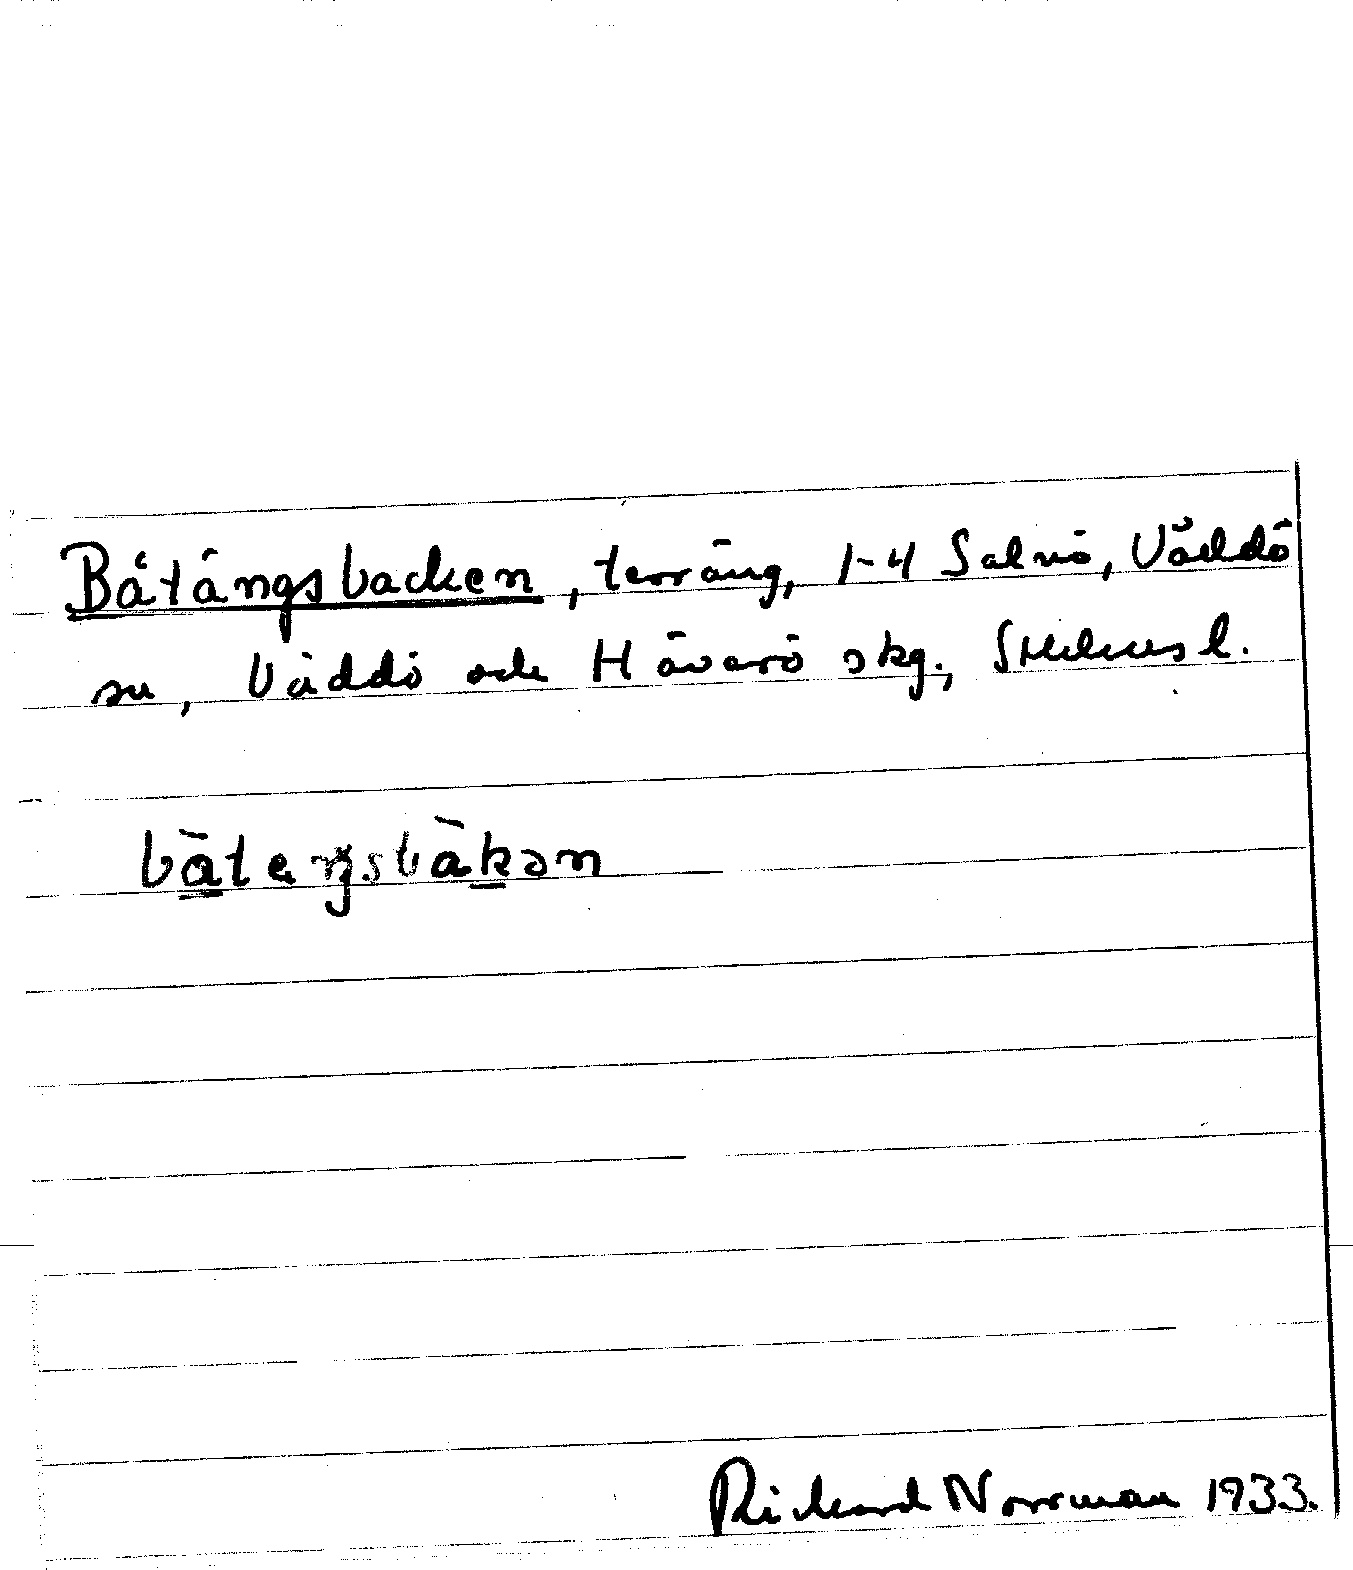 Båtängsbacken, terräng, 1-4 Salnö, Väddö
sn, Väddö och Häverö skg., Sthlms l.
bàteŋsbàkən
Rickard Norrman 1933.